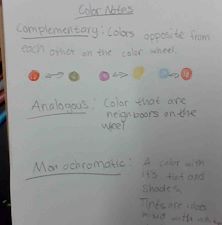 Color Notes
Complementary: Colors opposite from
each other on the color wheel.
Analogous: Color that are
neighboors on the
weel
Monochromatic: A color with
it's tint and
shades.
Tints are
mixed with